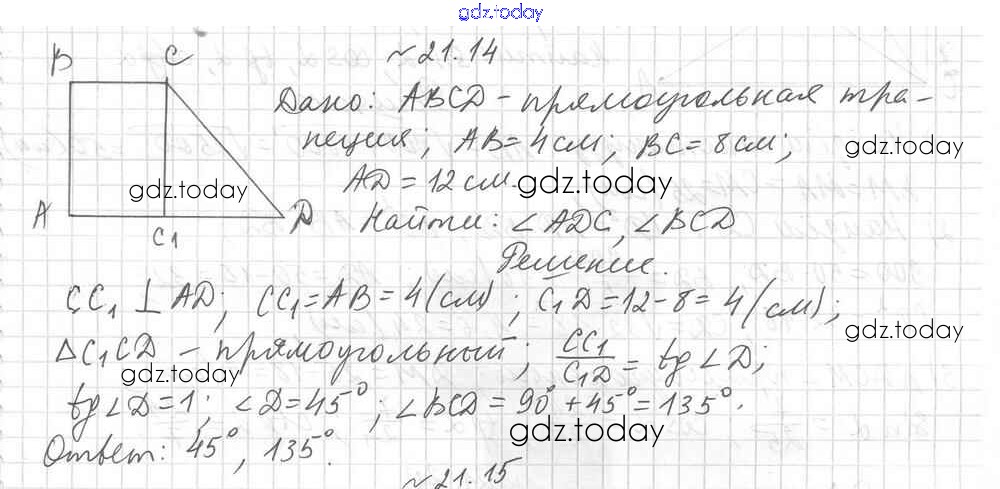 gdz.today
№21.14
B C
Дано: ABCD - прямоугольная тра-
пеция; AB=4см; BC=8см; gdz.today
gdz.today AD=12см. gdz.today
A C1 D Найти: ∠ADC, ∠BCD
Решение.
CC1 ⊥ AD; CC1=AB=4(см); C1D=12-8=4(см);
gdz.today
ΔC1CD - прямоугольный; CC1/C1D = tg∠D;
gdz.today
tg∠D=1; ∠D=45°; ∠BCD=90°+45°=135°.
gdz.today
Ответ: 45°, 135°.
№21.15